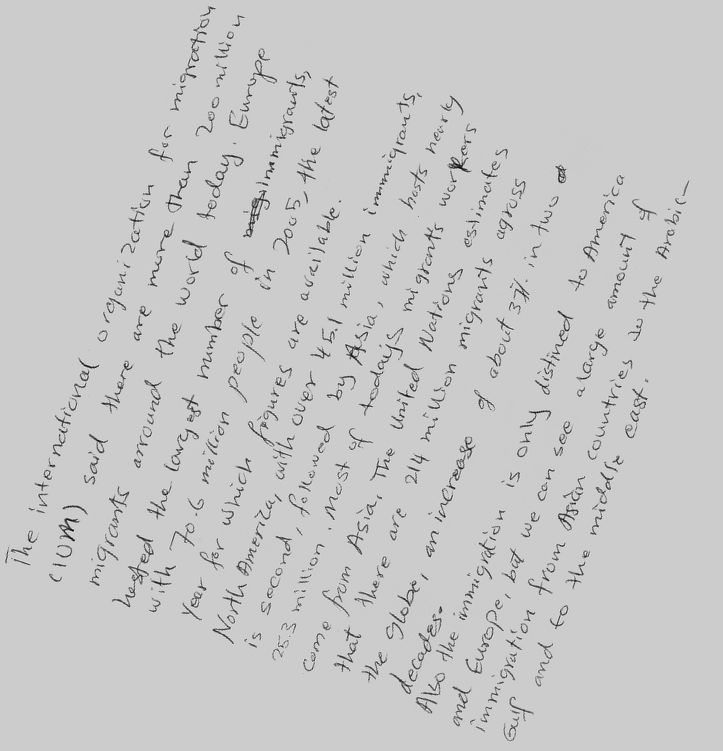 The international organization for migration
(IOM) said there are more than 200 million
migrants arround the world today. Europe
hosted the largest number of immigrants,
with 70.6 million people in 2005, the latest
year for which figures are available.
North America, with over 45.1 million immigrants,
is second, followed by Asia, which hosts nearly
25.3 million. Most of todays migrants workers
come from Asia. The United Nations estimates
that there are 214 million migrants across
the globe, an increase of about 37% in two
decades.
Also the immigration is only distined to America
and Europe, but we can see a large amount of
immigration from Asian countries to the Arabic
Gulf and to the middle east.